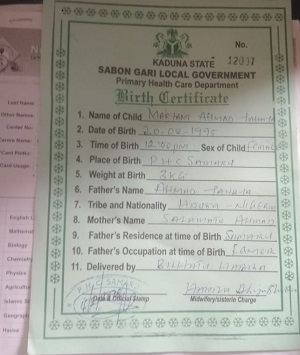 KADUNA STATE
No. 12037
SABON GARI LOCAL GOVERNMENT
Primary Health Care Department
Birth Certificate
1. Name of Child Mariam Ahmad
2. Date of Birth
3. Time of Birth 12:00pm Sex of Child Female
4. Place of Birth PHC Samaru
5. Weight at Birth 3KG
6. Father's Name Ahmad
7. Tribe and Nationality Hausa - Nigeria
8. Mother's Name Ahmad
9. Father's Residence at time of Birth Samaru
10. Father's Occupation at time of Birth Farmer
11. Delivered by
Date & Official Stamp
Midwifery/sisterin Charge
Last Name
Other Names
Center No
Card Usage
English L
Mathemati
Biology
Chemistry
Physics
Agricultu
Islamic St
Geograph
Hausa